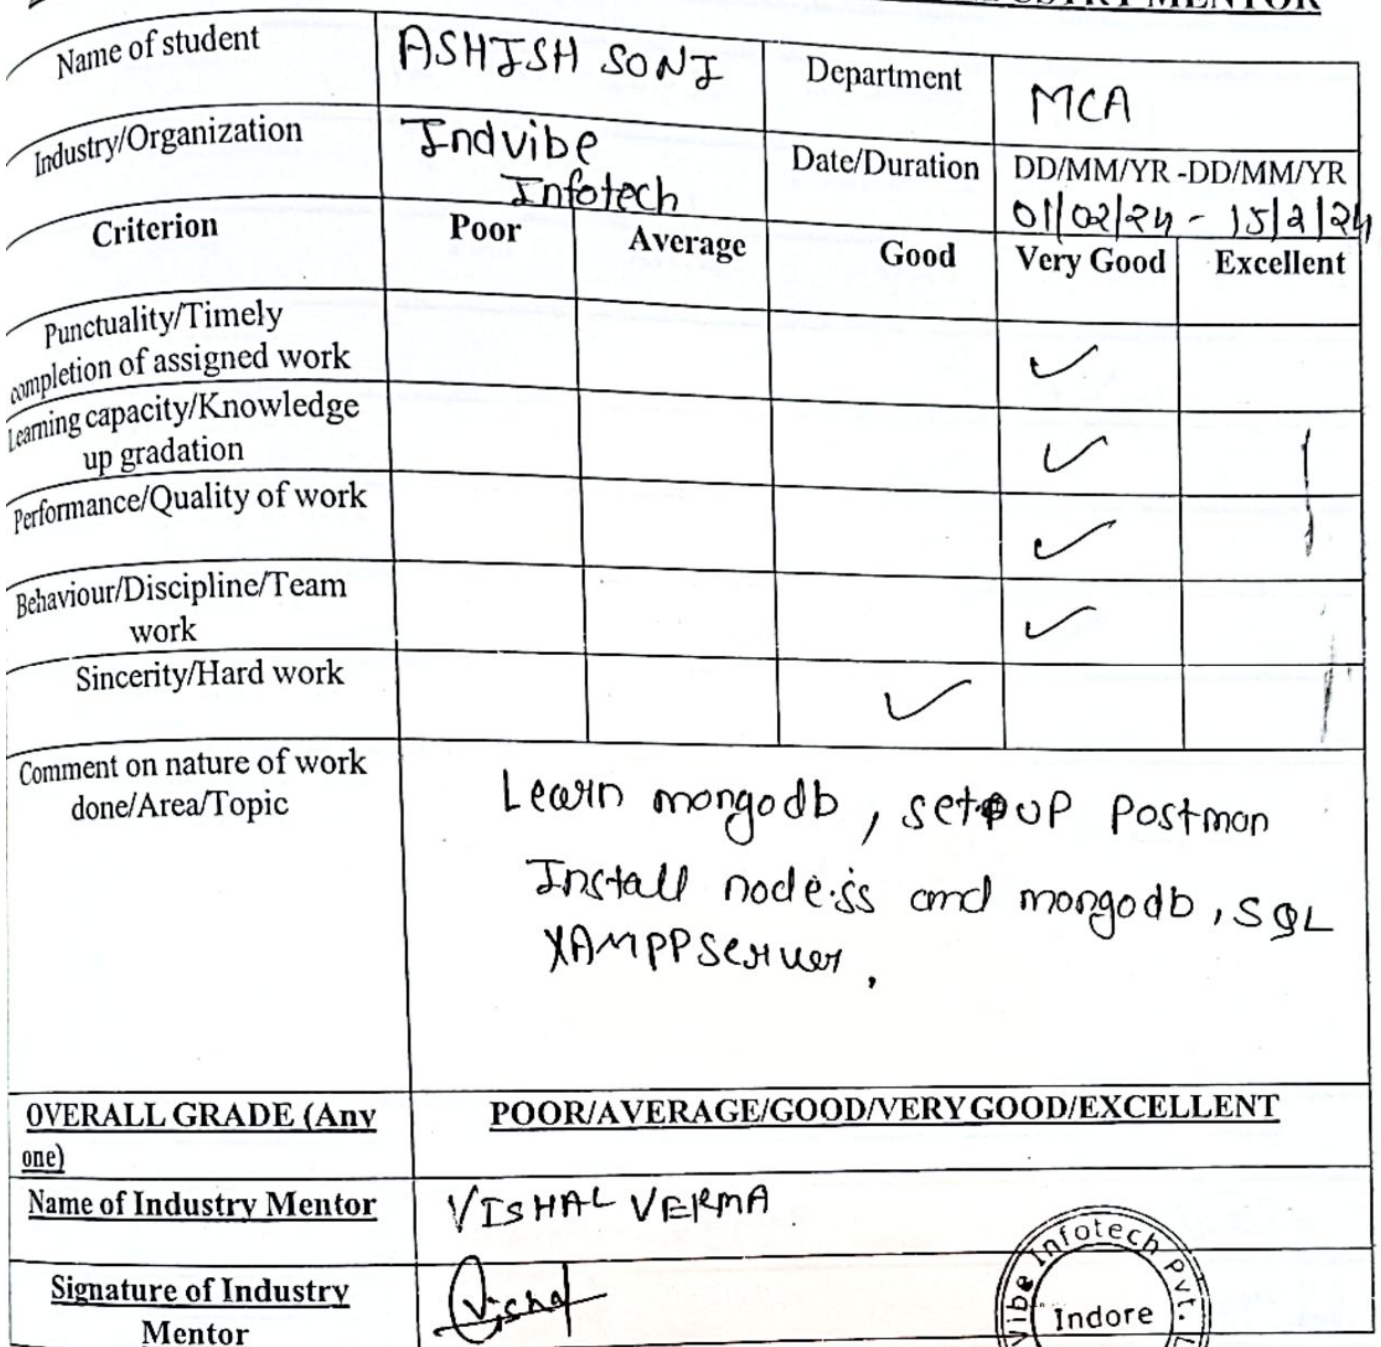 MENTOR
Name of student ASHISH SONI Department MCA
Industry/Organization Indvibe Infotech Date/Duration DD/MM/YR -DD/MM/YR
01/02/24 - 15/2/24
Criterion Poor Average Good Very Good Excellent
Punctuality/Timely
completion of assigned work ✓
Learning capacity/Knowledge
up gradation ✓
Performance/Quality of work ✓
Behaviour/Discipline/Team
work ✓
Sincerity/Hard work ✓
Comment on nature of work
done/Area/Topic
Learn mongodb, setup Postman
Install node.js and mongodb, SQL
XAMPP Server.
OVERALL GRADE (Any
one)
POOR/AVERAGE/GOOD/VERY GOOD/EXCELLENT
Name of Industry Mentor VISHAL VERMA
Signature of Industry
Mentor
Vishal
vibe Infotech Pvt.
Indore